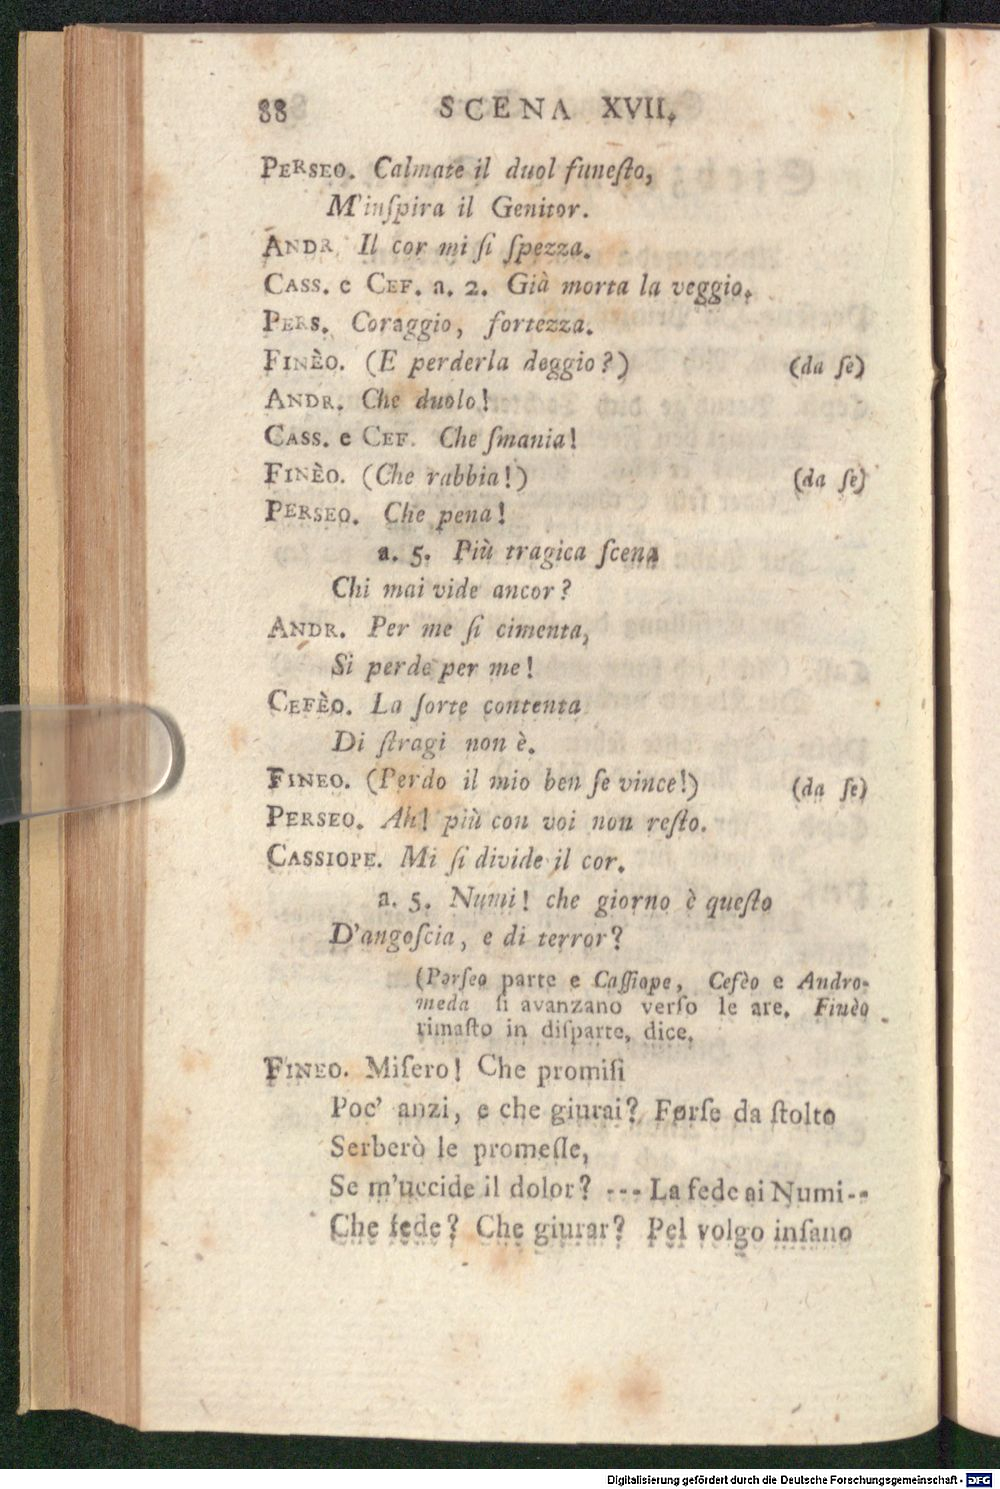 88 SCENA XVII.
PERSEO. Calmate il duol funeſto,
M'inſpira il Genitor.
ANDR. Il cor mi ſi ſpezza.
CASS. e CEF. a. 2. Già morta la veggio.
PERS. Coraggio, fortezza.
FINÈO. (E perderla deggio?) (da ſe)
ANDR. Che duolo!
CASS. e CEF. Che ſmania!
FINÈO. (Che rabbia!) (da ſe)
PERSEO. Che pena!
a. 5. Più tragica ſcena
Chi mai vide ancor?
ANDR. Per me ſi cimenta,
Si perde per me!
CEFÈO. La ſorte contenta
Di ſtragi non è.
FINEO. (Perdo il mio ben ſe vince!) (da ſe)
PERSEO. Ah! più con voi non reſto.
CASSIOPE. Mi ſi divide il cor.
a. 5. Numi! che giorno è queſto
D'angoſcia, e di terror?
(Perſeo parte e Caſſiope, Cefèo e Andro-
meda ſi avanzano verſo le are. Finèo
rimaſto in diſparte, dice.
FINEO. Miſero! Che promiſi
Poc' anzi, e che giurai? Forſe da ſtolto
Serberò le promeſſe,
Se m'uccide il dolor? --- La fede ai Numi--
Che fede? Che giurar? Pel volgo inſano
Digitalisierung gefördert durch die Deutsche Forschungsgemeinschaft - DFG